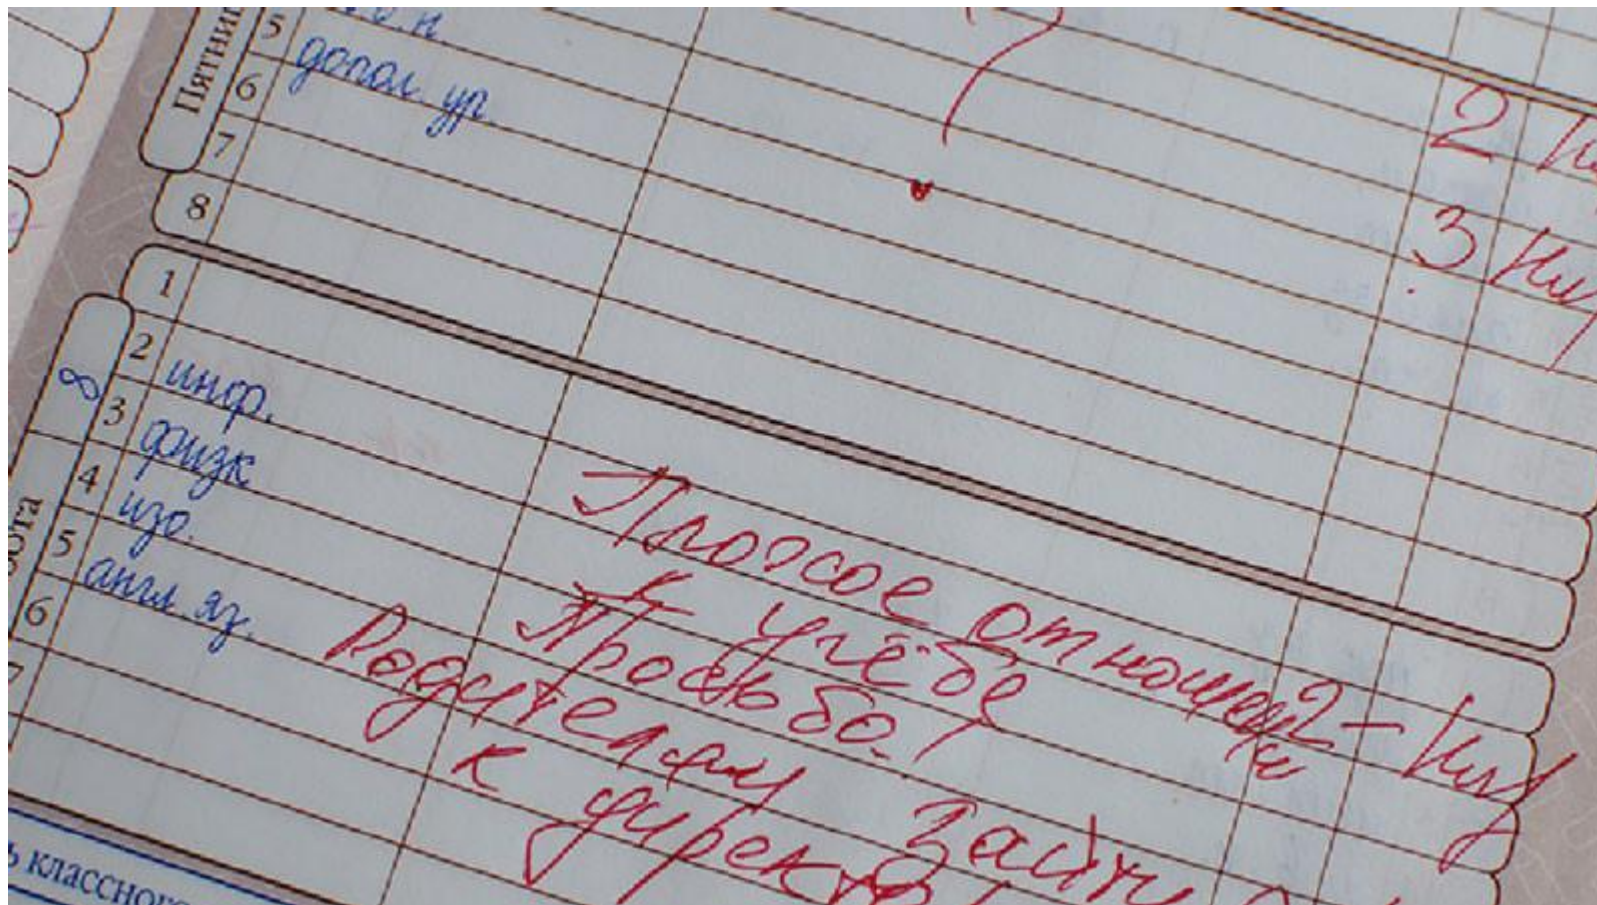 Пятниц
5
6 допол. ур.
7
8
?
2
3
1
2 инф.
3 физк
4 изо.
5 англ. яз.
6
7
∞
ота
Плохое отношени
2-
к учёбе!
Просьба
Родителям зайти
к директ
ь классного